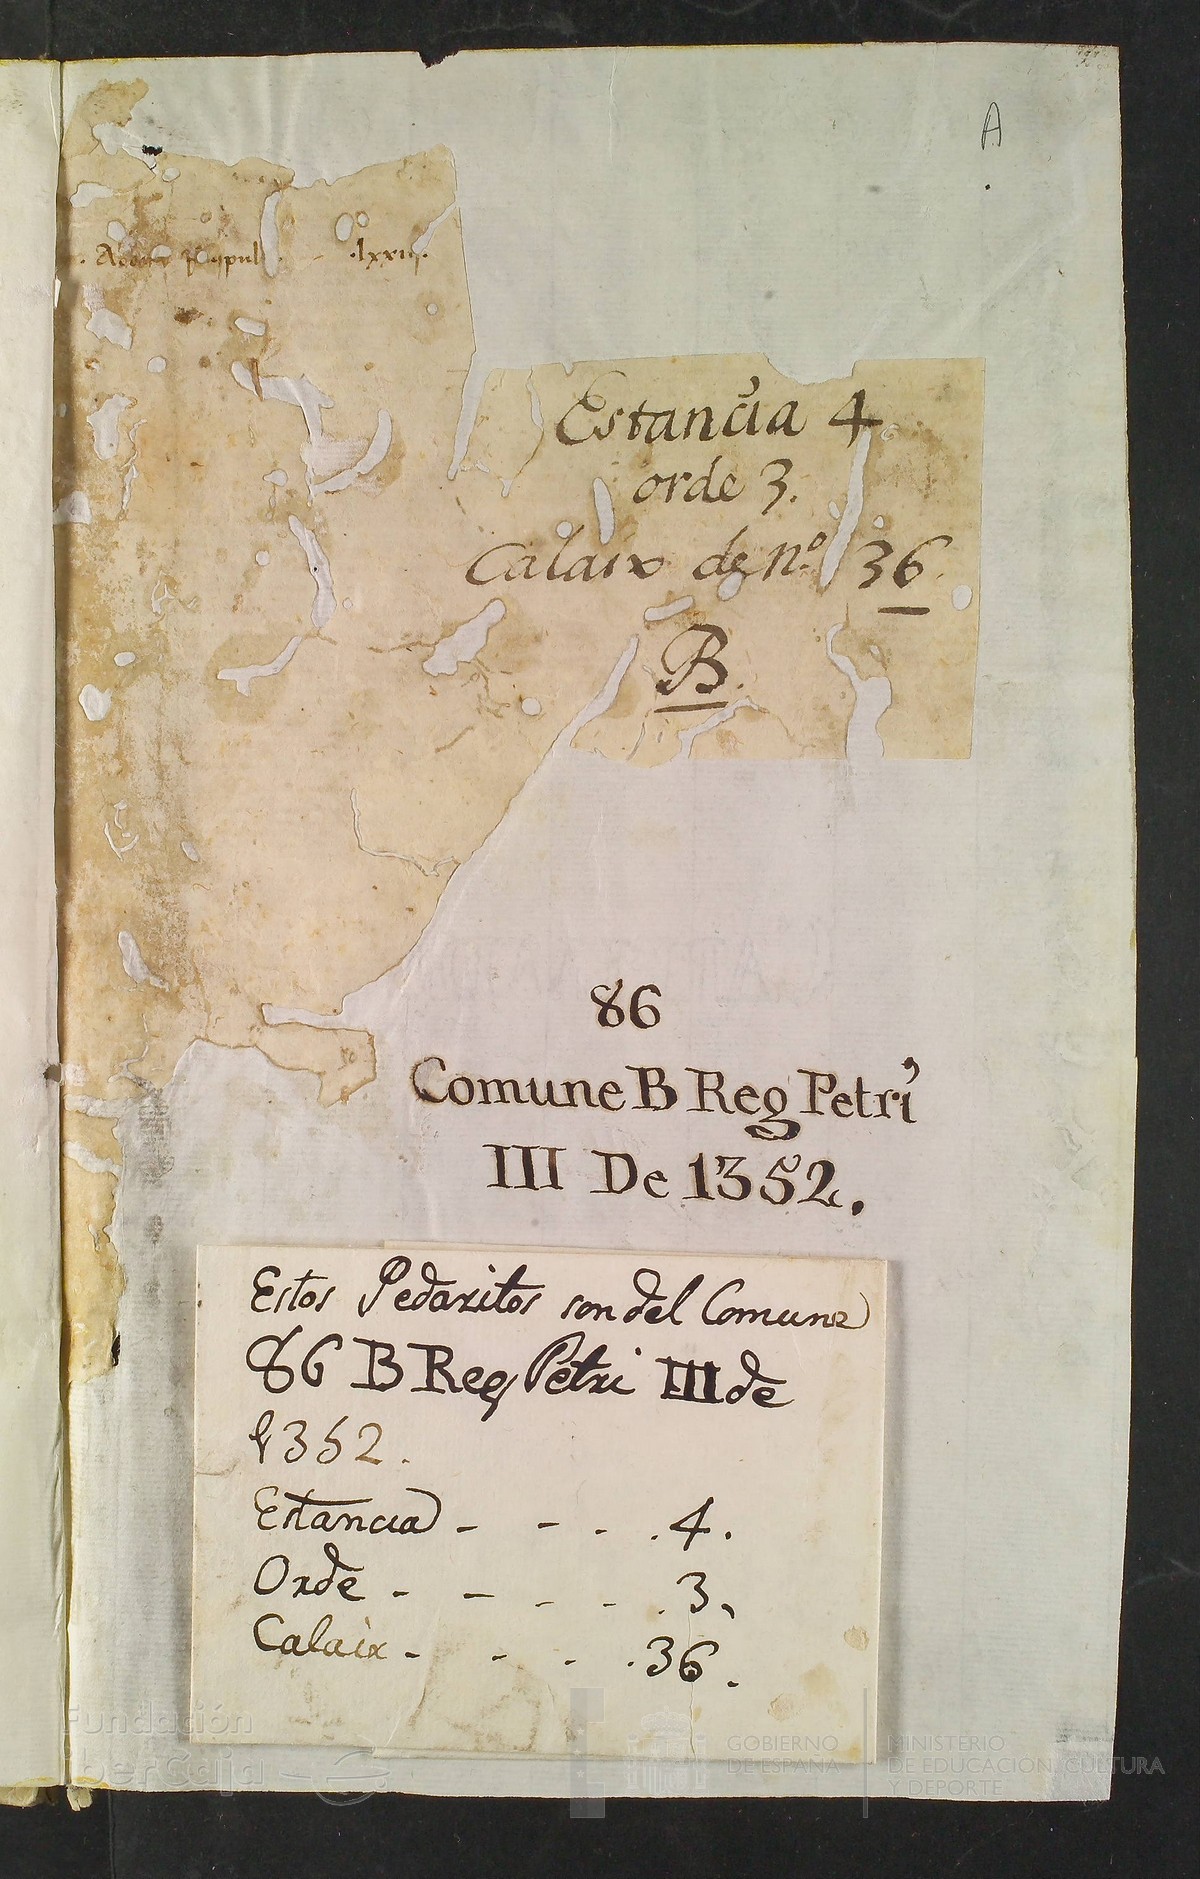 A
.lxxii.
Estancia 4
orde 3.
Calaix de n.º 36.
B.
86
Comune B Reg Petri
III De 1352.
Estos Pedazitos son del Comune
86 B Reg Petri III de
1352.
Estancia - - - . 4.
Orde - - - - . 3,
Calaix - - - . 36.
Fundación
iberCaja
GOBIERNO
DE ESPAÑA
MINISTERIO
DE EDUCACIÓN, CULTURA
Y DEPORTE